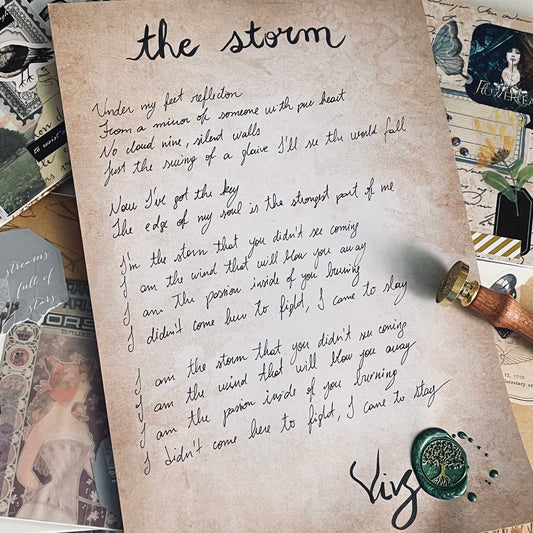 the storm
Under my feet reflection
From a mirror of someone with pure heart
No cloud nine, silent walls
Just the swing of a glaive I'll see the world fall
Now I've got the key
The edge of my soul is the strongest part of me
I'm the storm that you didn't see coming
I am the wind that will blow you away
I am the passion inside of you burning
I didn't come here to fight, I came to stay
I am the storm that you didn't see coming
I am the wind that will blow you away
I am the passion inside of you burning
I didn't come here to fight, I came to stay
Viz
streams
full of
stars